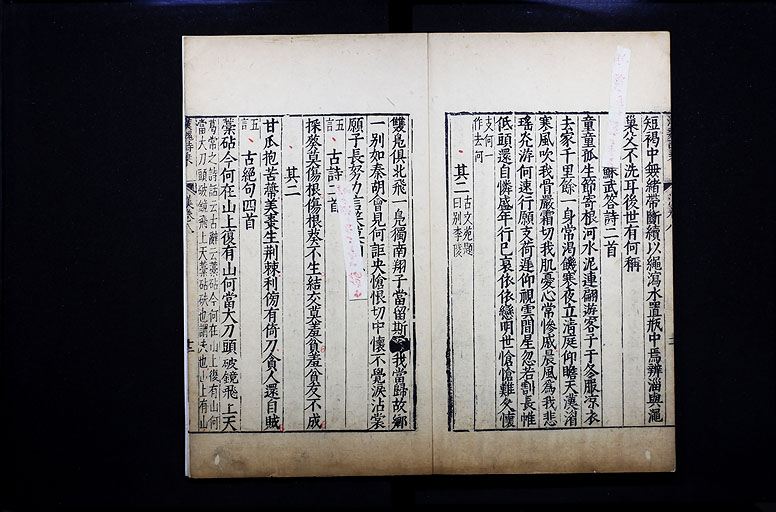 短褐中無緒帶斷續以繩瀉水置瓶中焉辨淄與澠
巢父不洗耳後世有何稱
蘇武答詩二首
童童孤生節寄根河水泥連翩遊客子于冬服凉衣
去家千里餘一身常渴饑寒夜立清庭仰瞻天漢湄
寒風吹我骨嚴霜切我肌憂心常慘戚晨風為我悲
瑤光游何速行願支荷遲仰視雲間星忽若割長帷
低頭還自憐盛年行已衰依依戀明世愴愴難久懷
支何一
作去何
其二
古文苑題
曰別李陵
雙鳬俱北飛一鳬獨南翔子當留斯
我當歸故鄉
一別如秦胡會見何詎央愴恨切中懷不覺淚沾裳
願子長努力言笑莫
五言
古詩二首
採葵莫傷根傷根葵不生結交莫羞貧羞貧交不成
其二
甘瓜抱苦蔕美棗生荆棘利傍有倚刀貪人還自賊
五言
古絕句四首
藁砧今何在山上復有山何當大刀頭破鏡飛上天
葛常之詩話云古辭云藁砧今何在山上復有山何
當大刀頭破鏡飛上天藁砧砆也謂夫也山上有山